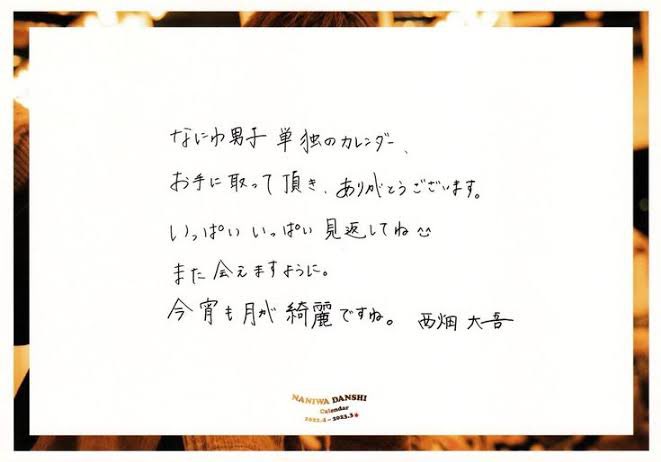 なにわ男子 単独のカレンダー、
お手に取って頂き、ありがとうございます。
いっぱい いっぱい 見返してね
また 会えますように。
今宵も月が綺麗ですね。 西畑 大吾
NANIWA DANSHI
Calendar
2022.4-2023.3